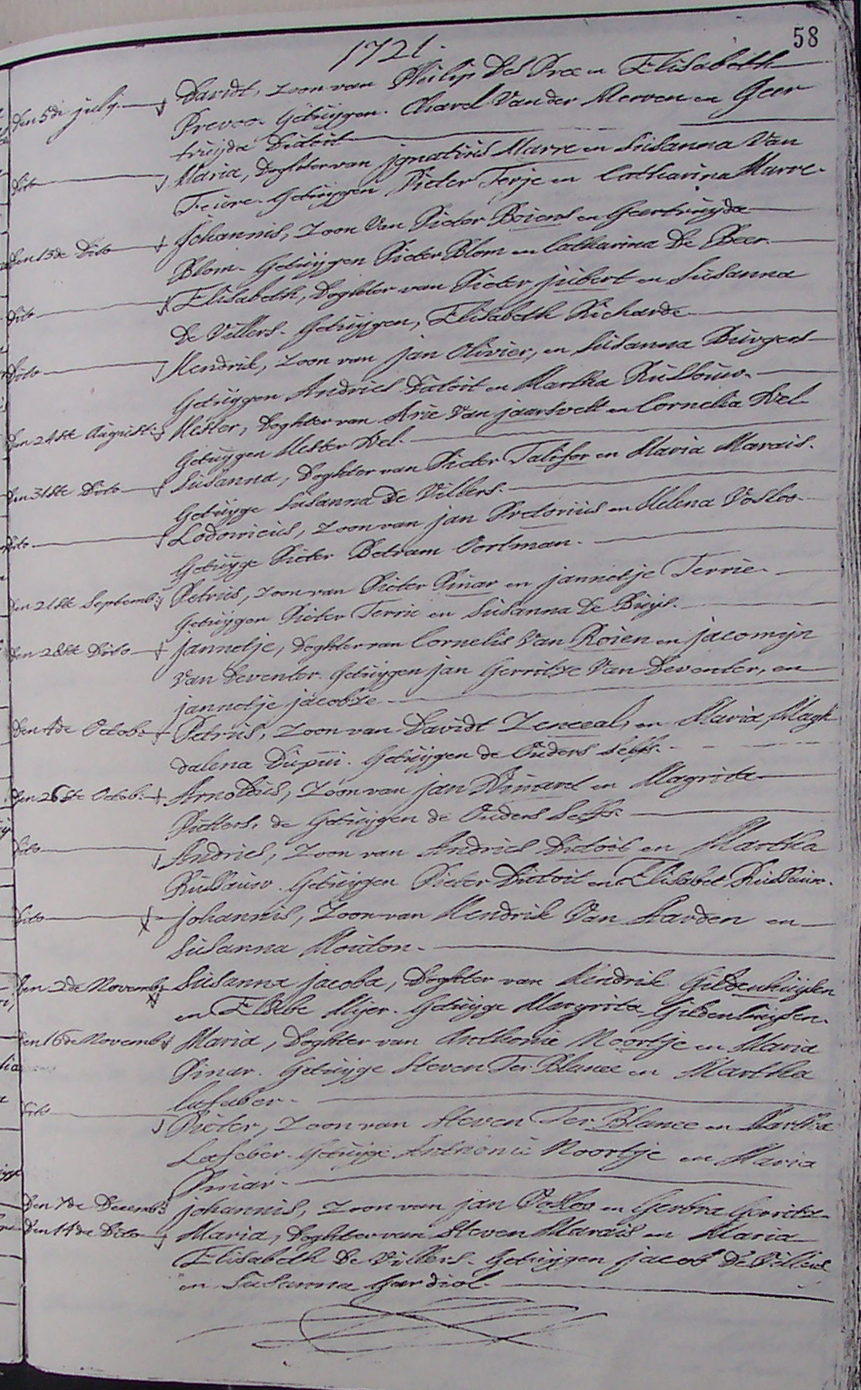 58
1721.
Den 5de july Davidt, zoon van Philip Des Pree en Elisabeth
Prevoo. Getuijgen. Charel Van der Merven en Geer
truijda Dutoit
Dito Maria, Doghter van jgnatius Marre en Susanna Van
Getuijgen Pieter Terje en Catharina Marre.
Den 13de Dito Johannis, Zoon Van Pieter Boiens en Geertruijda
Blom. Getuijgen Pieter Blom en Catharina De Beer.
Dito Elisabeth, Doghter van Pieter jubert en Susanna
De Villers. Getuijgen, Elisabeth Richarde
Dito Hendrik, zoon van jan Olivier, en Susanna Burgers
Getuijgen Andries Dutoit en Martha
Den 24ste August: Hester, Doghter van Arie Van jaarsvelt en Cornelia Nel
Getuijgen Hester Nel.
Den 31ste Dito Susanna, Doghter van Pieter Talifer en Maria Marais.
Getuijge Susanna De Villers.
Dito Lodovicus, zoon van jan Pretorius en Helena Vosloo
Getuijge Pieter Betram Oortman.
Den 21ste Septemb: Petrus, zoon van Pieter Pinar en jannetje Terrie
Getuijgen Pieter Terrie en Susanna De Buijs.
Den 28ste Dito jannetje, Doghter van Cornelis Van Roien en jacomijn
Van Deventer. Getuijgen jan Gerritse Van Deventer, en
jannetje jacobse
Den 4de Octob: Petrus, zoon van Davidt Zeneeal, en Maria Magh
dalena Dupui. Getuijgen de Ouders selfs.
Den 26ste Octob: Arnoldus, Zoon van jan Winard en Magrita
Pieters, de Getuijgen de Ouders Selfs.
Dito Andries, zoon van Andries Dutoit en Martha
Getuijgen Pieter Dutoit en Elisabet
Dito Johannis, Zoon van Hendrik Van Aarden en
Susanna Mouton.
Den 2de Novemb: Susanna jacoba, Doghter van Hindrik Gildenhuijsen
en Elbebe Mijer. Getuijge Margrita Gildenhuijsen.
Den 16de Novemb: Maria, Doghter van Anthonie Noortje en Maria
Pinar. Getuijge Steven Ter Blance en Martha
Lufeber.
Dito Pieter, zoon van Steven Ter Blance en Martha
Lefeber. Getuijge Anthonie Noortje en Maria
Pinar.
Den 7de Decemb: johannis, Zoon van jan Vosloo en Gerbra Gerrits
Den 14de Dito Maria, Doghter van Steven Marais en Maria
Elisabeth De Villers. Getuijgen jacob De Villiers
en Susanna Gardiol